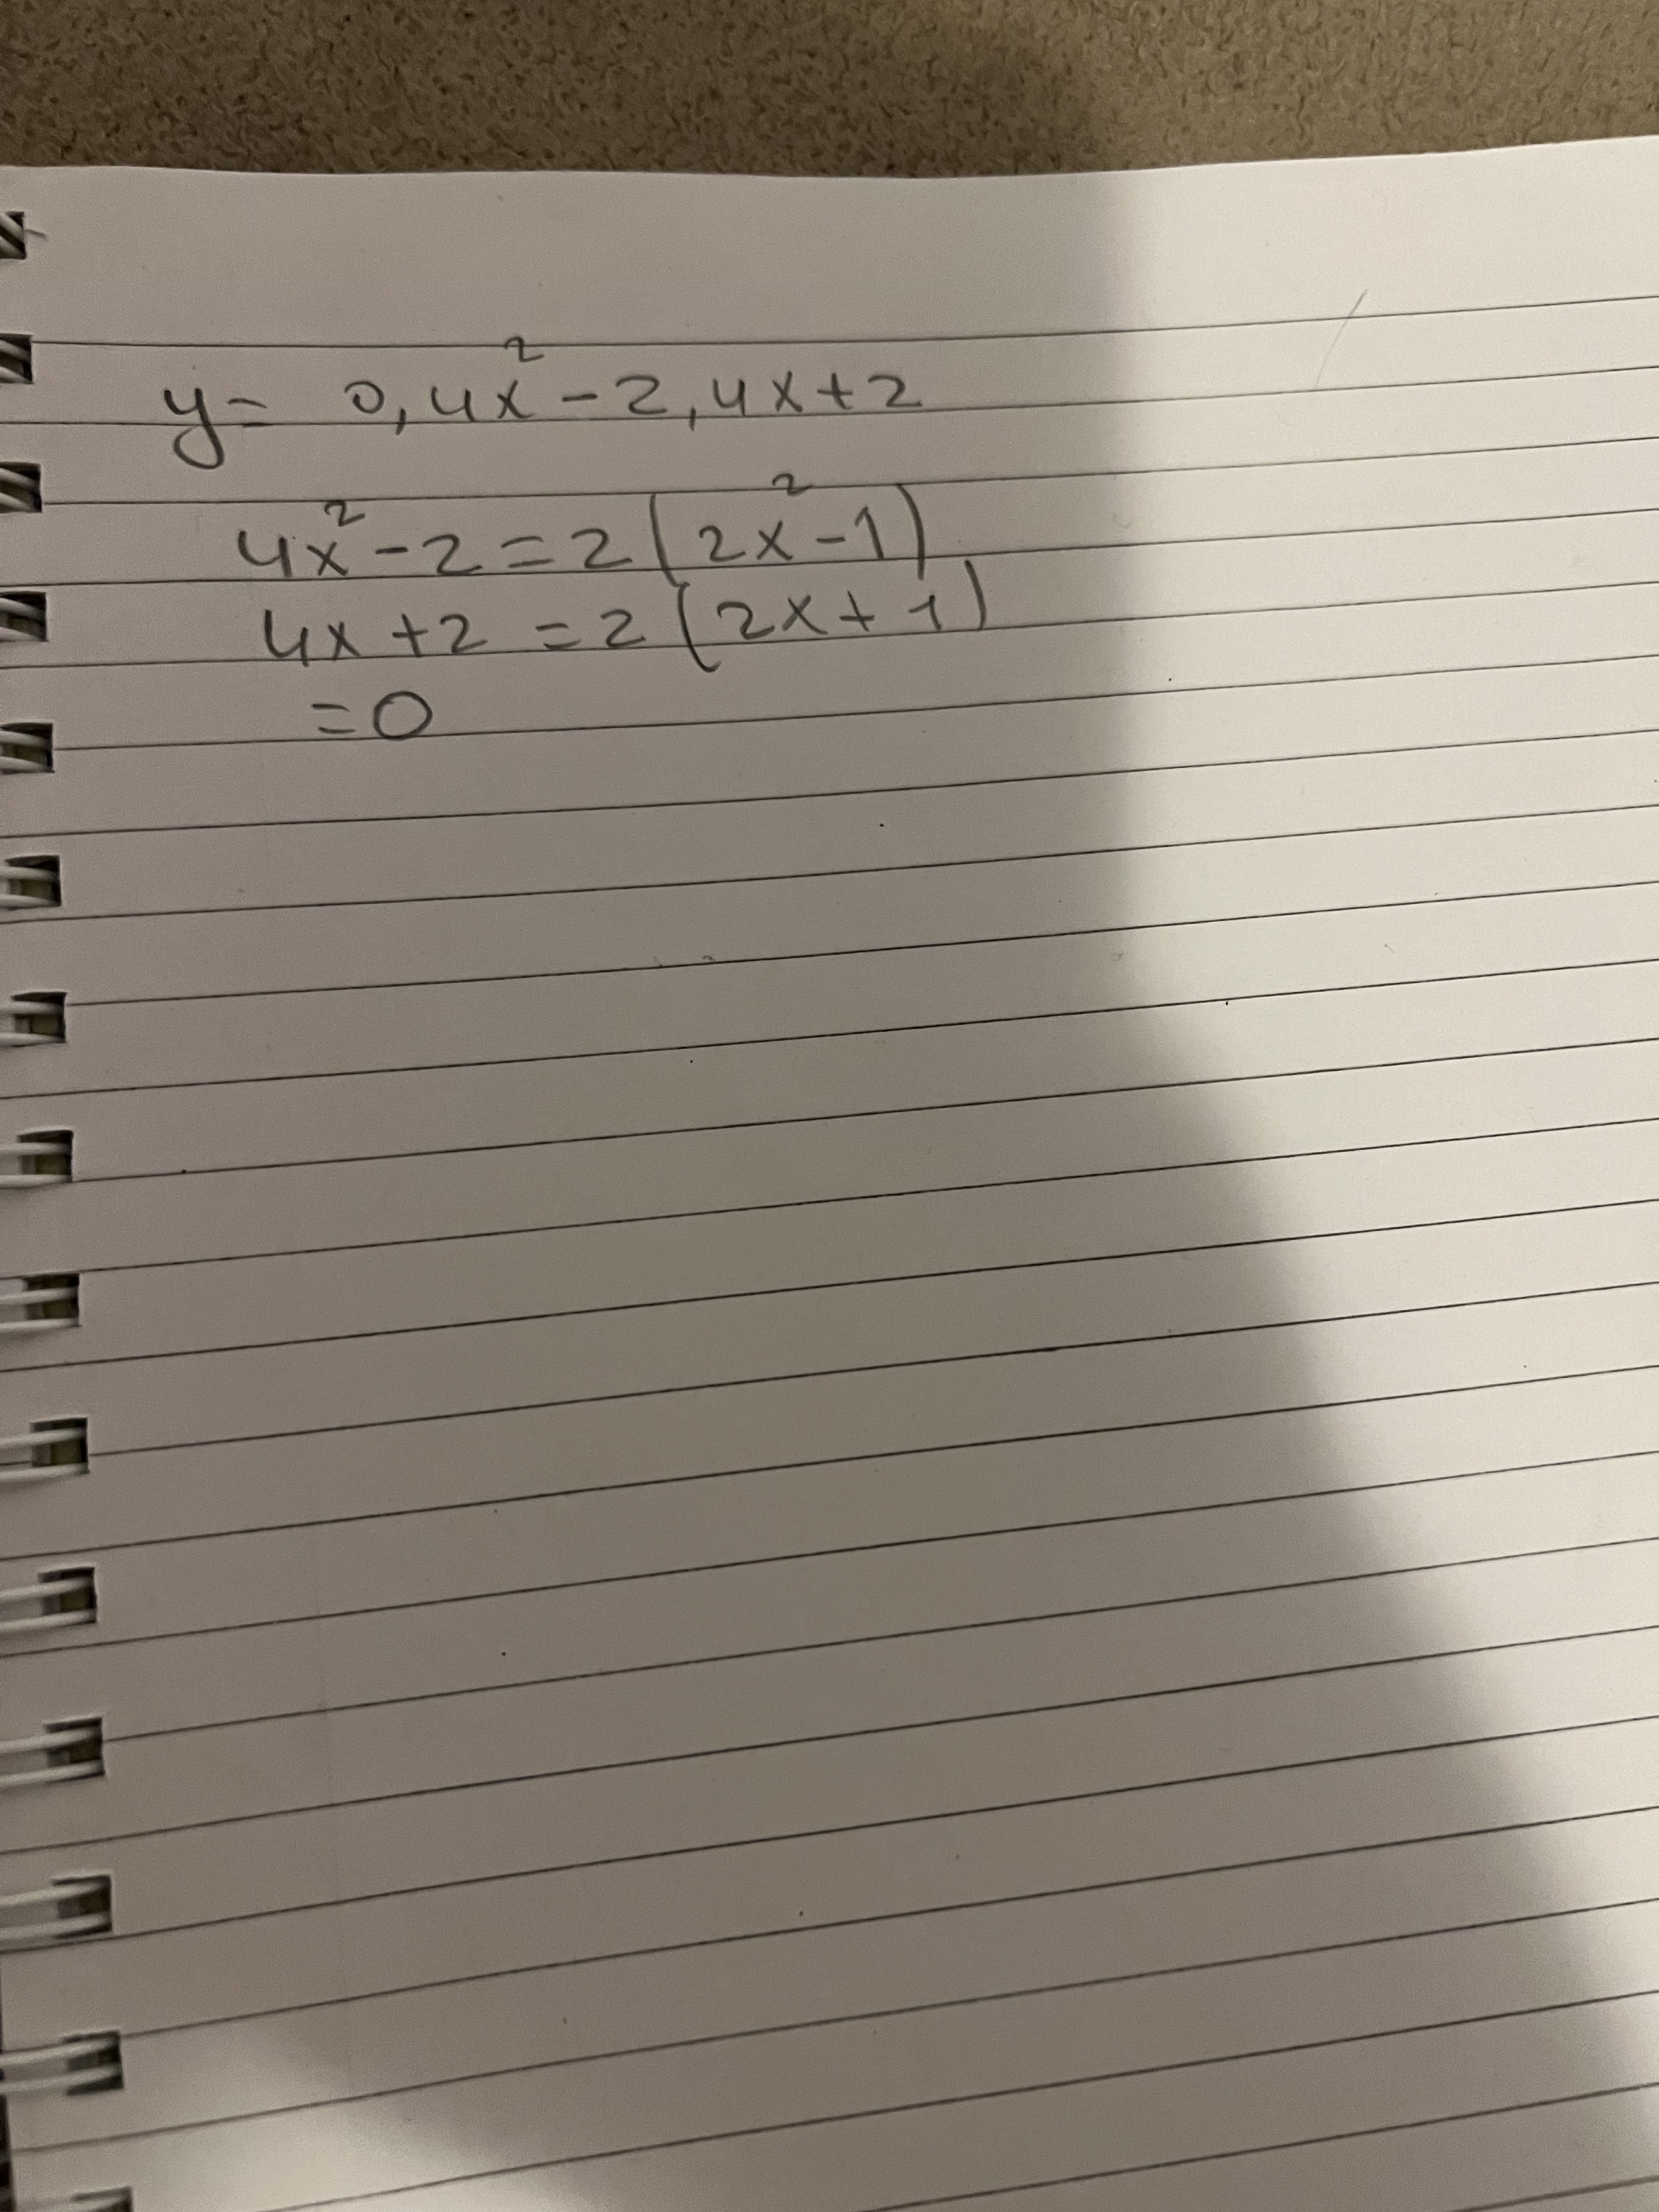 y= 0,4x²-2,4x+2
4x²-2=2(2x²-1)
4x+2=2(2x+1)
=0